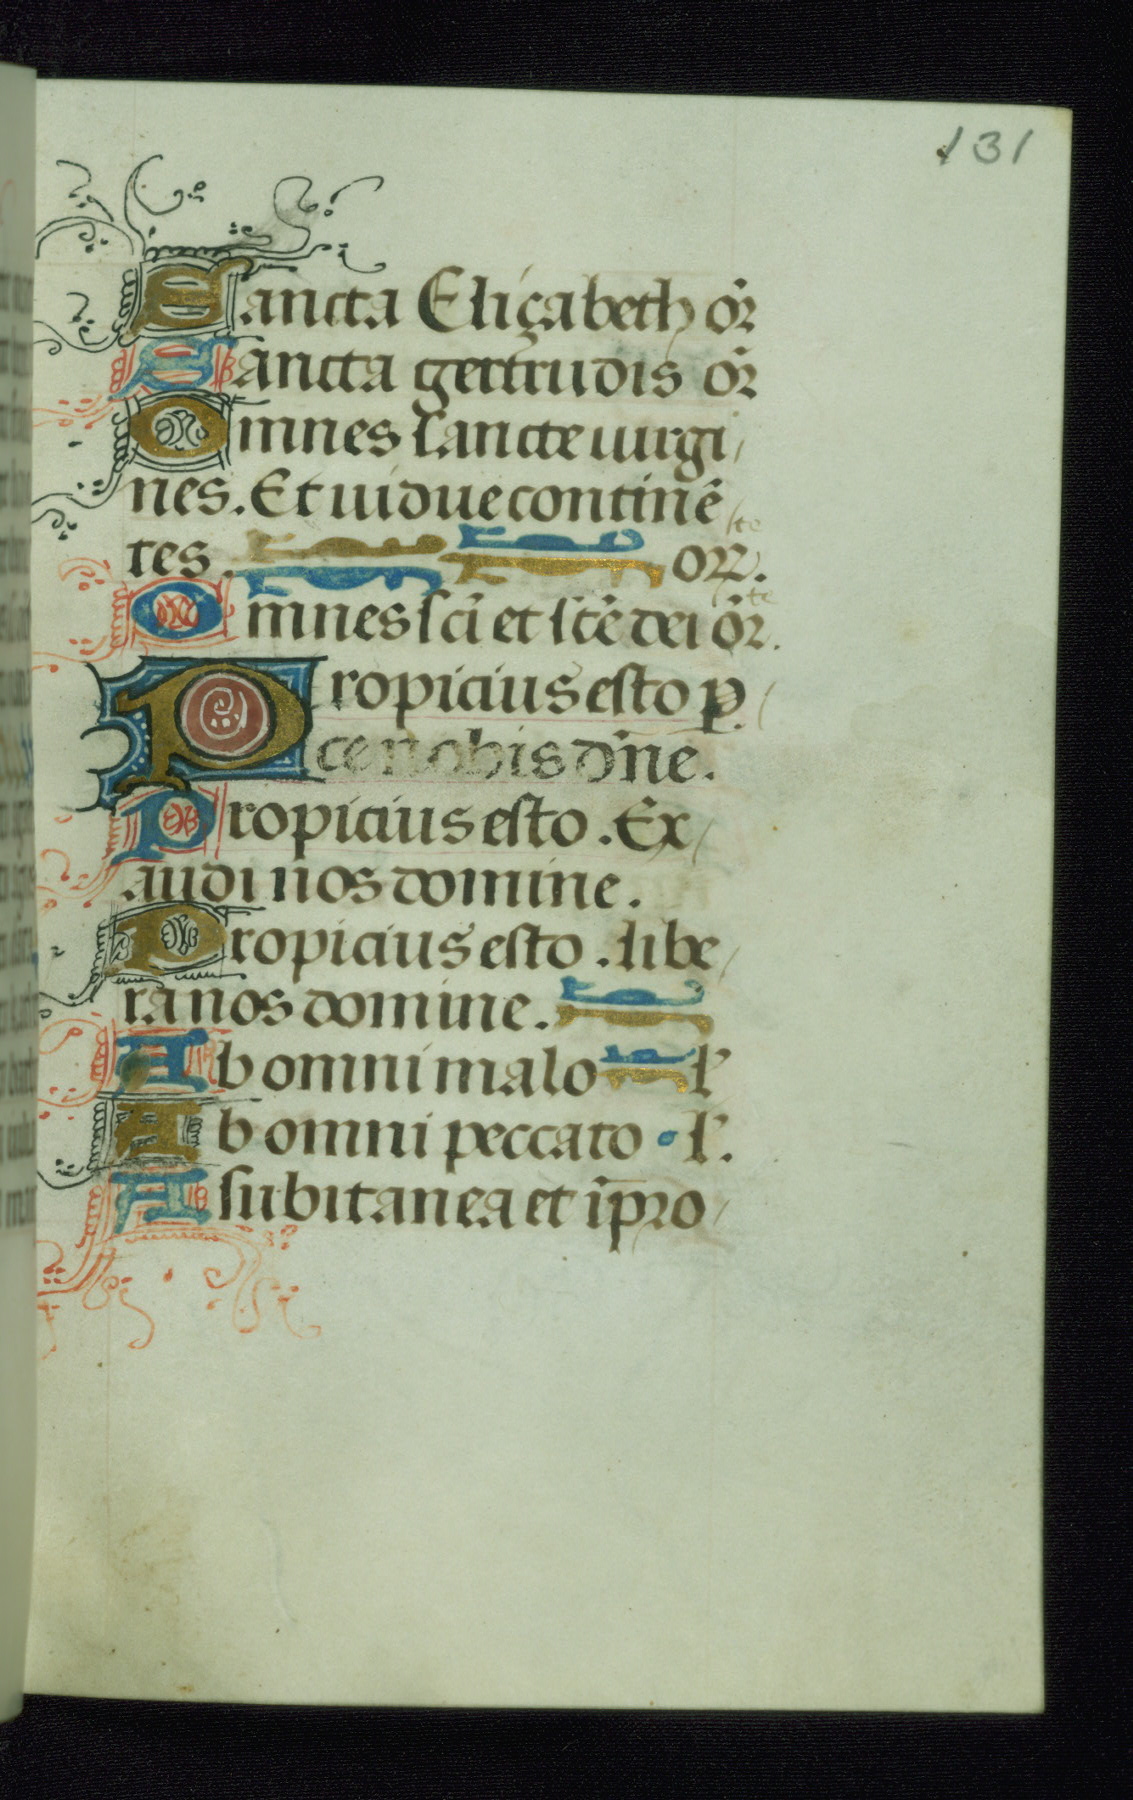 131
Sancta Eliçabeth or̃
Sancta gertrudis or̃
Omnes sancte uirgi
nes. Et uidue continẽ
tes. orr.
te
te
Omnes sc̃i et sc̃e dei or̃.
Propicius esto ꝑ
ce nobis dñe.
Propicius esto. Ex
audi nos domine.
Propicius esto. libe
ra nos domine.
Ab omni malo l'
Ab omni peccato l'.
A subitanea et ĩpro